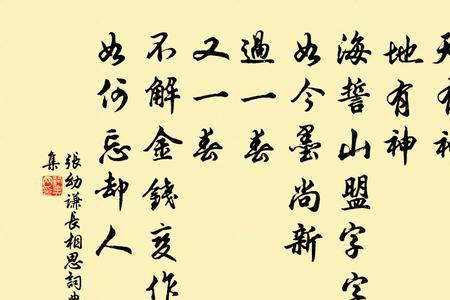 天有神
地有神
海誓山盟字字
如今墨尚新
過一春
又一春
不解金錢变作
如何忘却人
張幼謙長相思詞典
集